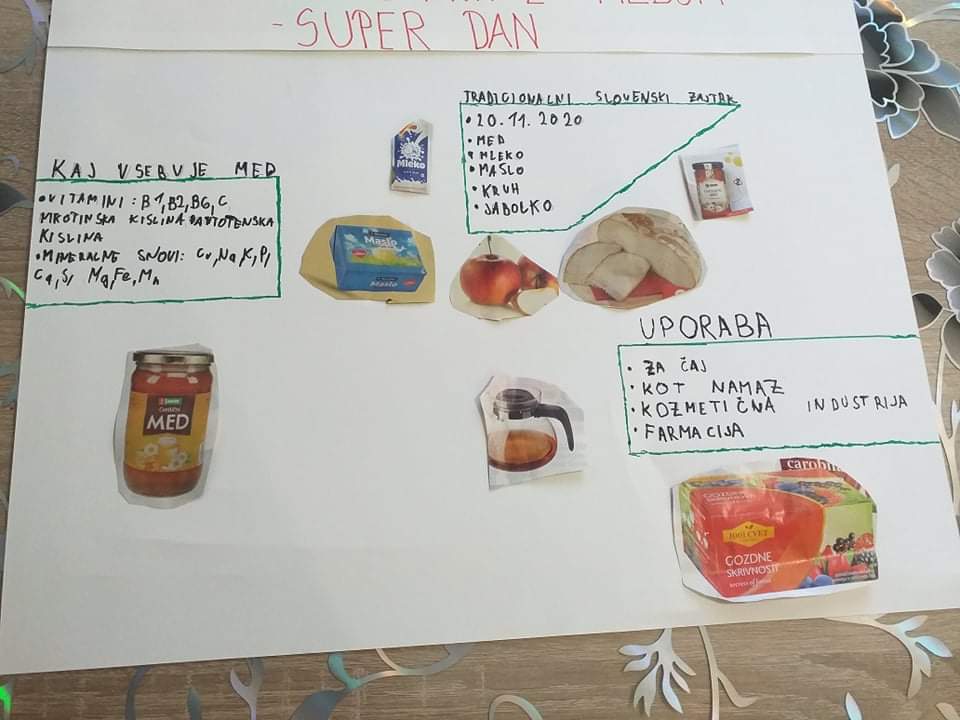 MEDOM
-SUPER DAN
TRADICIONALNI SLOVENSKI ZAJTRK
•20.11.2020
•MED
•MLEKO
•MASLO
•KRUH
•JABOLKO
KAJ VSEBUJE MED
•VITAMINI: B1,B2,B6,C,
KISLINA
KISLINA
•MINERALNE SNOVI: Cu,Na,K,P,
Ca,S, Mg,Fe,Mn
Mleko
Maslo
Maslo
UPORABA
• ZA ČAJ
• KOT NAMAZ
• KOZMETIČNA INDUSTRIJA
• FARMACIJA
Cvetlični
MED
1001 CVET
GOZDNE
SKRIVNOSTI
secrets of forest